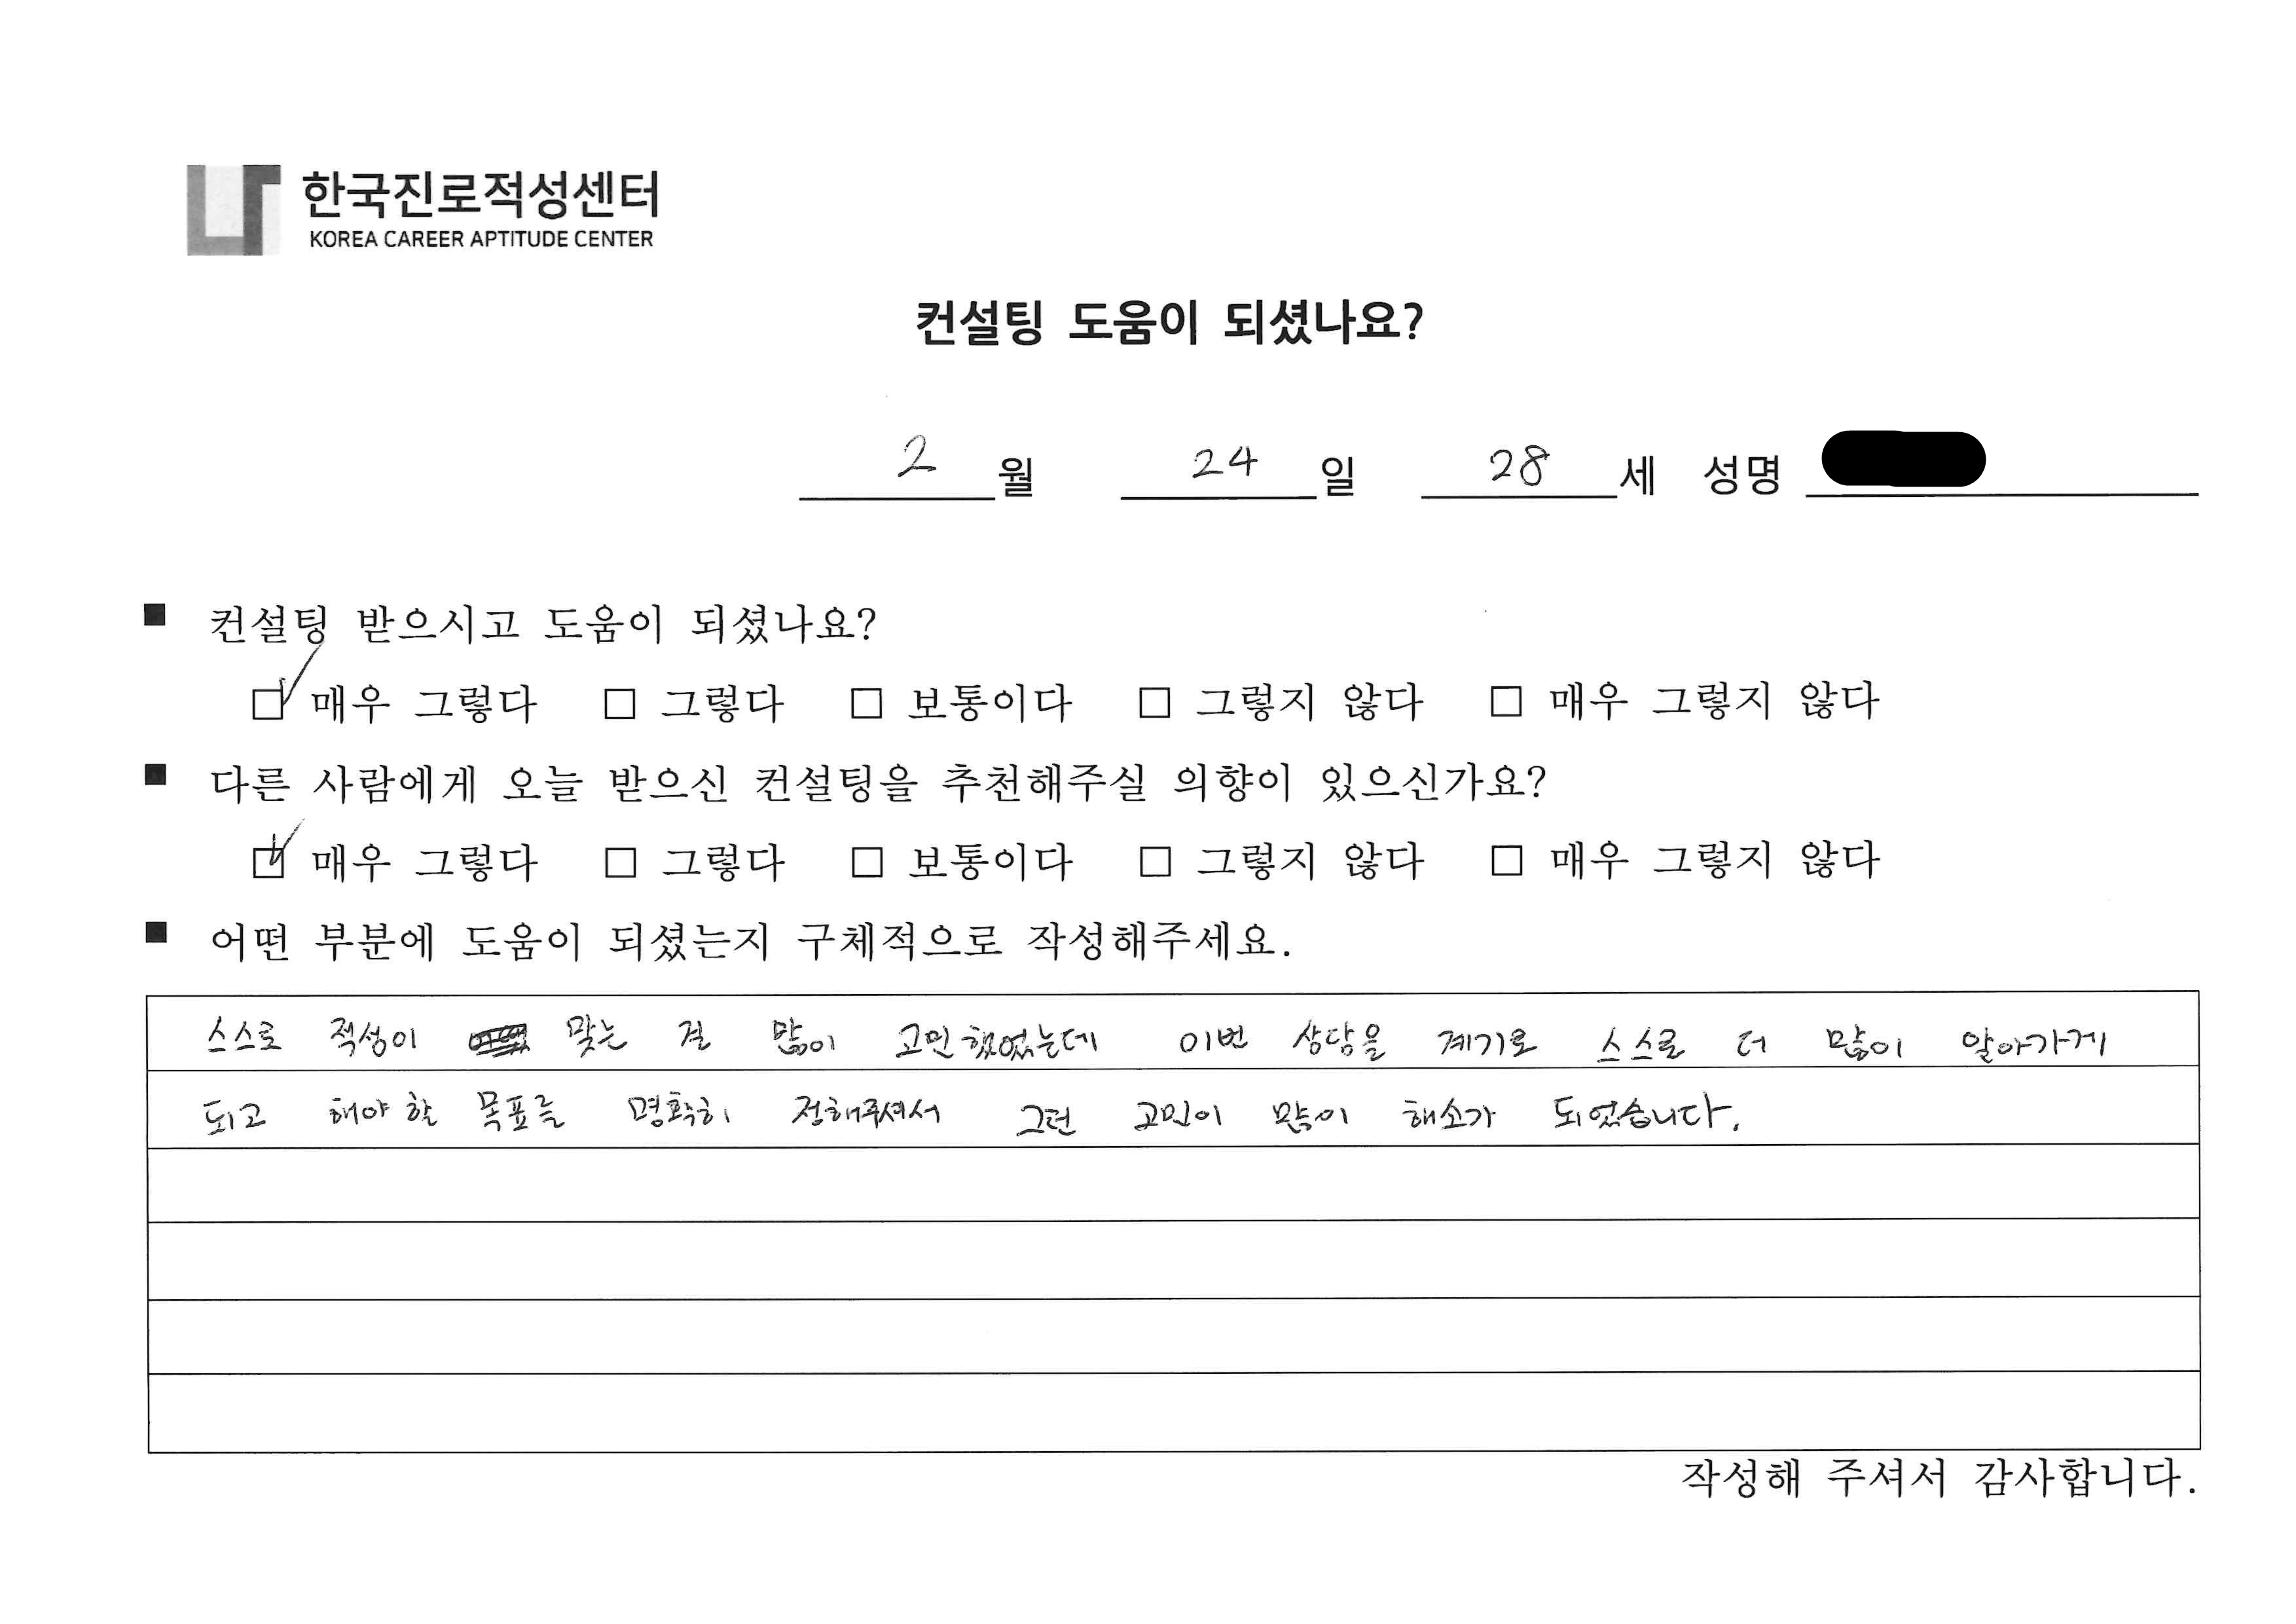 한국진로적성센터
KOREA CAREER APTITUDE CENTER
컨설팅 도움이 되셨나요?
2 월 24 일 28 세 성명
■ 컨설팅 받으시고 도움이 되셨나요?
☑ 매우 그렇다 □ 그렇다 □ 보통이다 □ 그렇지 않다 □ 매우 그렇지 않다
■ 다른 사람에게 오늘 받으신 컨설팅을 추천해주실 의향이 있으신가요?
☑ 매우 그렇다 □ 그렇다 □ 보통이다 □ 그렇지 않다 □ 매우 그렇지 않다
■ 어떤 부분에 도움이 되셨는지 구체적으로 작성해주세요.
스스로 적성이 맞는 걸 많이 고민했었는데 이번 상담을 계기로 스스로 더 많이 알아가게
되고 해야할 목표를 명확히 정해주셔서 그런 고민이 많이 해소가 되었습니다.
작성해 주셔서 감사합니다.